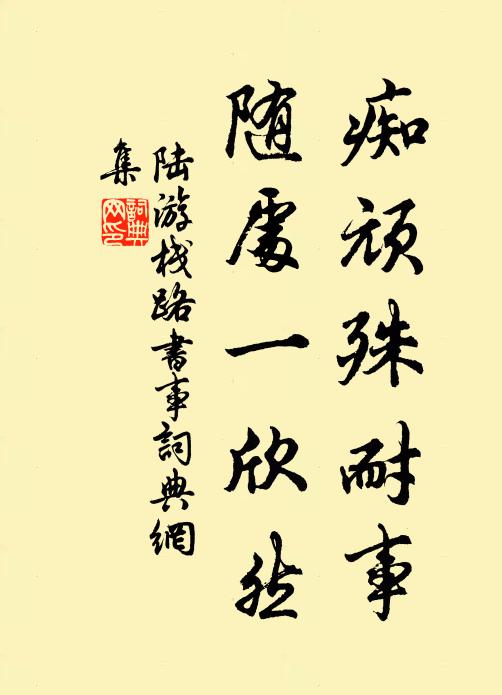 痴顽殊耐事
随处一欣然
陆游栈路书事词典网
集
词典网印